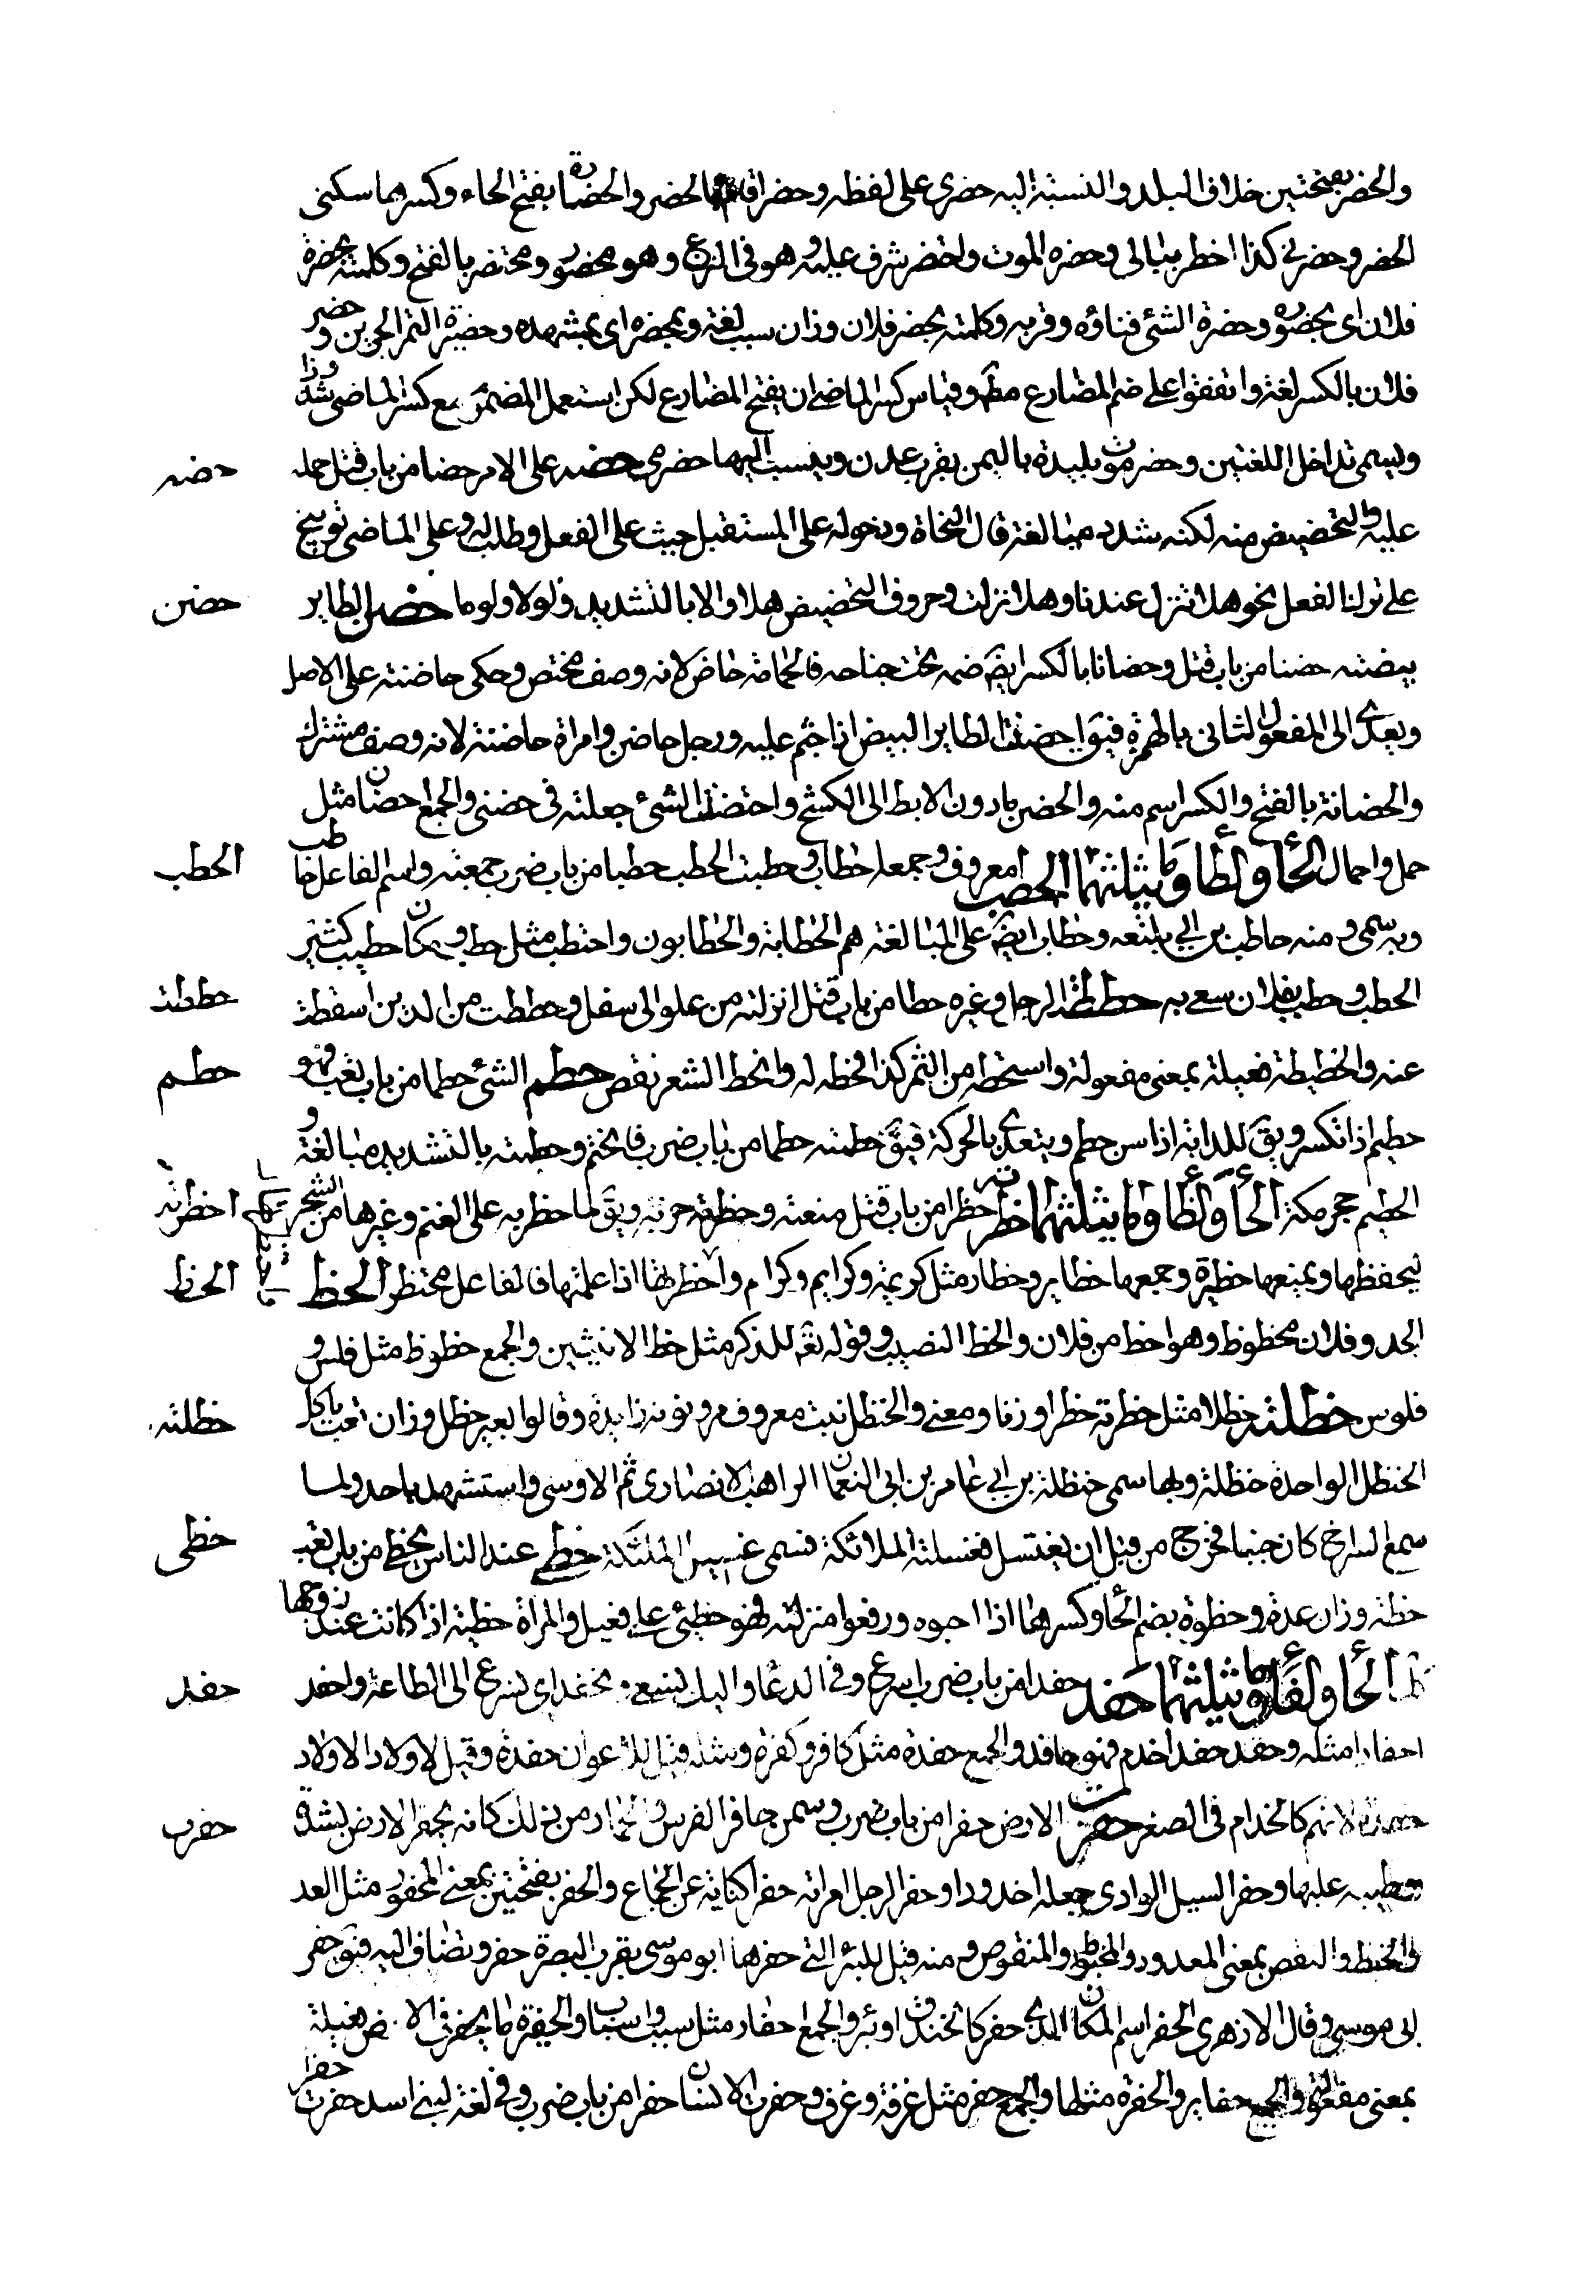 والحضر بفتحتين خلاف البلد والنسبة اليه حضري على لفظه وحضر اقام بالحضر والحضارة بفتح الحاء وكسرها سكنى
الحضر وحضرني كذا اخطر ببالى وحضره الموت واحتضر شرف عليه وهو في النزع وهو محضور ومحتضر بالفتح وكلمته بحضرة
فلان اى بحضوره وحضرة الشئ فناؤه وقربه وكلمته بحضر فلان وزان سبب لغة وبمحضره اى بمشهده وحضيرة التمر الجرين وحضر
فلان بالكسر لغة واتفقوا على ضم المضارع مط وقياس كسر الماضي ان يفتح المضارع لكن استعمل المضموم مع كسر الماضى شذوذا
ويسمى تداخل اللغتين وحضرموت بليدة باليمن بقرب عدن وينسب اليها حضرمي حضه على الامر حضا من باب قتل حمله
حضه
عليه والتحضيض منه لكنه شدد مبالغة قال النحاة ودخوله على المستقبل حيث على الفعل وطلب له وعلى الماضى توبيخ
على ترك الفعل نحو هلا تنزل عندنا وهلا نزلت وحروف التحضيض هلا والا بالتشديد ولولا ولوما حضن الطاير
حضن
بيضته حضنا من باب قتل وحضانا بالكسر ايض ضمه تحت جناحه فالحمامة حاض لانه وصف مختص وحكى حاضنة على الاصل
ويعدى الى المفعول الثانى بالهمزة فيق احضنت الطاير البيض اذا جثم عليه ورجل حاضن وامراة حاضنة لانه وصف مشترك
والحضانة بالفتح والكسر اسم منه والحضن مادون الابط الى الكشح واحتضنت الشئ جعلته في حضنى والجمع احضان مثل
حمل واحمال الحا والطا وما يثلثهما الحصب معروف وجمعه احطاب وحطبت الحطب حطبا من باب ضرب جمعته واسم الفاعل حاطب
الحطب
وبه سمى ومنه حاطب بن ابي بلتعه وحطاب ايض على المبالغة هم الحطابة والحطابون واحتطب مثل حطب ومكان حطيب كثير
الحطب وحطب بفلان سعى به حططت الرحل وغيره حطا من باب قتل انزلته من علو الى سفل وحططت من الدين اسقطت
حططت
عنه والحطيطة فعيلة بمعنى مفعولة واستحطه من الثمر كذا فحطه له وانحط الشعر نقص حطم الشئ حطما من باب تعب فهو
حطم
حطيم اذا تكسر ويق للدابة اذا سن حطم ويتعدى بالحركة فيق حطمته حطما من باب ضرب فانحتم وحطمته بالتشديد مبالغة و
الحطيم حجر مكة الحا والظا وما يثلثهما حظرته حظرا من باب قتل منعته وحظرته حزته ويق لما حظر به على الغنم وغيرها من الشجر
احظرته
ليحفظها ويمنعها حظيرة وجمعها حظاير وحظار مثل كريمة وكرايم وكرام واحظرتها اذا عملتها فالفاعل محتظر الحظ
الحظ
الجد وفلان محظوظ وهو احظ من فلان والحظ النصيب وقوله تعم للذكر مثل حظ الانثيين والجمع حظوظ مثل فلس و
فلوس حظلته حظلا مثل حظرته حظرا وزنا ومعنى والحنظل نبت معروف مر ونونه زايدة وقالوا بعير حظل وزان تعب ياكل
حظلته
الحنظل الواحدة حنظلة وبها سمى حنظلة بن ابي عامر بن ابى النعمان الراهب الانصارى ثم الاوسى واستشهد باحد ولما
سمع الصراخ كان جنبا فخرج من قبل ان يغتسل فغسلته الملائكة فسمى غسيل الملئكة حظى عند الناس يحظى من باب تعب
حظى
حظة وزان عدة وحظوة بضم الحا وكسرها اذا احبوه ورفعوا منزلته فهو حظيئ على فعيل والمراة حظية اذا كانت عند زوجها
الحا والفا وما يثلثهما حفد حفدا من باب ضرب اسرع وفى الدعا واليك نسعى ونحفد اى نسرع الى الطاعة واحفد
حفد
احفادا مثله وحفد حفدا خدم فهو حافد والجمع حفدة مثل كافر وكفرة ومنه قيل للاعوان حفدة وقيل لاولاد الاولاد
حفدة لانهم كالخدام فى الصغر حفرت الارض حفرا من باب ضرب وسمى حافر الفرس والحمار من ذلك كانه يحفر الارض بشدة
حفرت
وطيه عليها وحفر السيل الوادى جعله اخدودا وحفر الرجل امراته حفرا كناية عن الجماع والحفر بفتحتين بمعنى المحفور مثل العدد
والخبط والنقص بمعنى المعدود والمخبوط والمنقوص ومنه قيل للبئر التى حفرها ابو موسى بقرب البصرة حفر وتضاف اليه فيق حفر
ابى موسى وقال الازهرى الحفر اسم المكان الذى حفر كالخندق او بئر والجمع احفار مثل سبب واسباب والحفيرة ما يحفر في الارض فعيلة
بمعنى مفعولة والجمع حفاير والحفرة مثلها والجمع حفر مثل غرفة وغرف وحفرت الاسنان حفرا من باب ضرب وفى لغة لبنى اسد حفرت حفرا